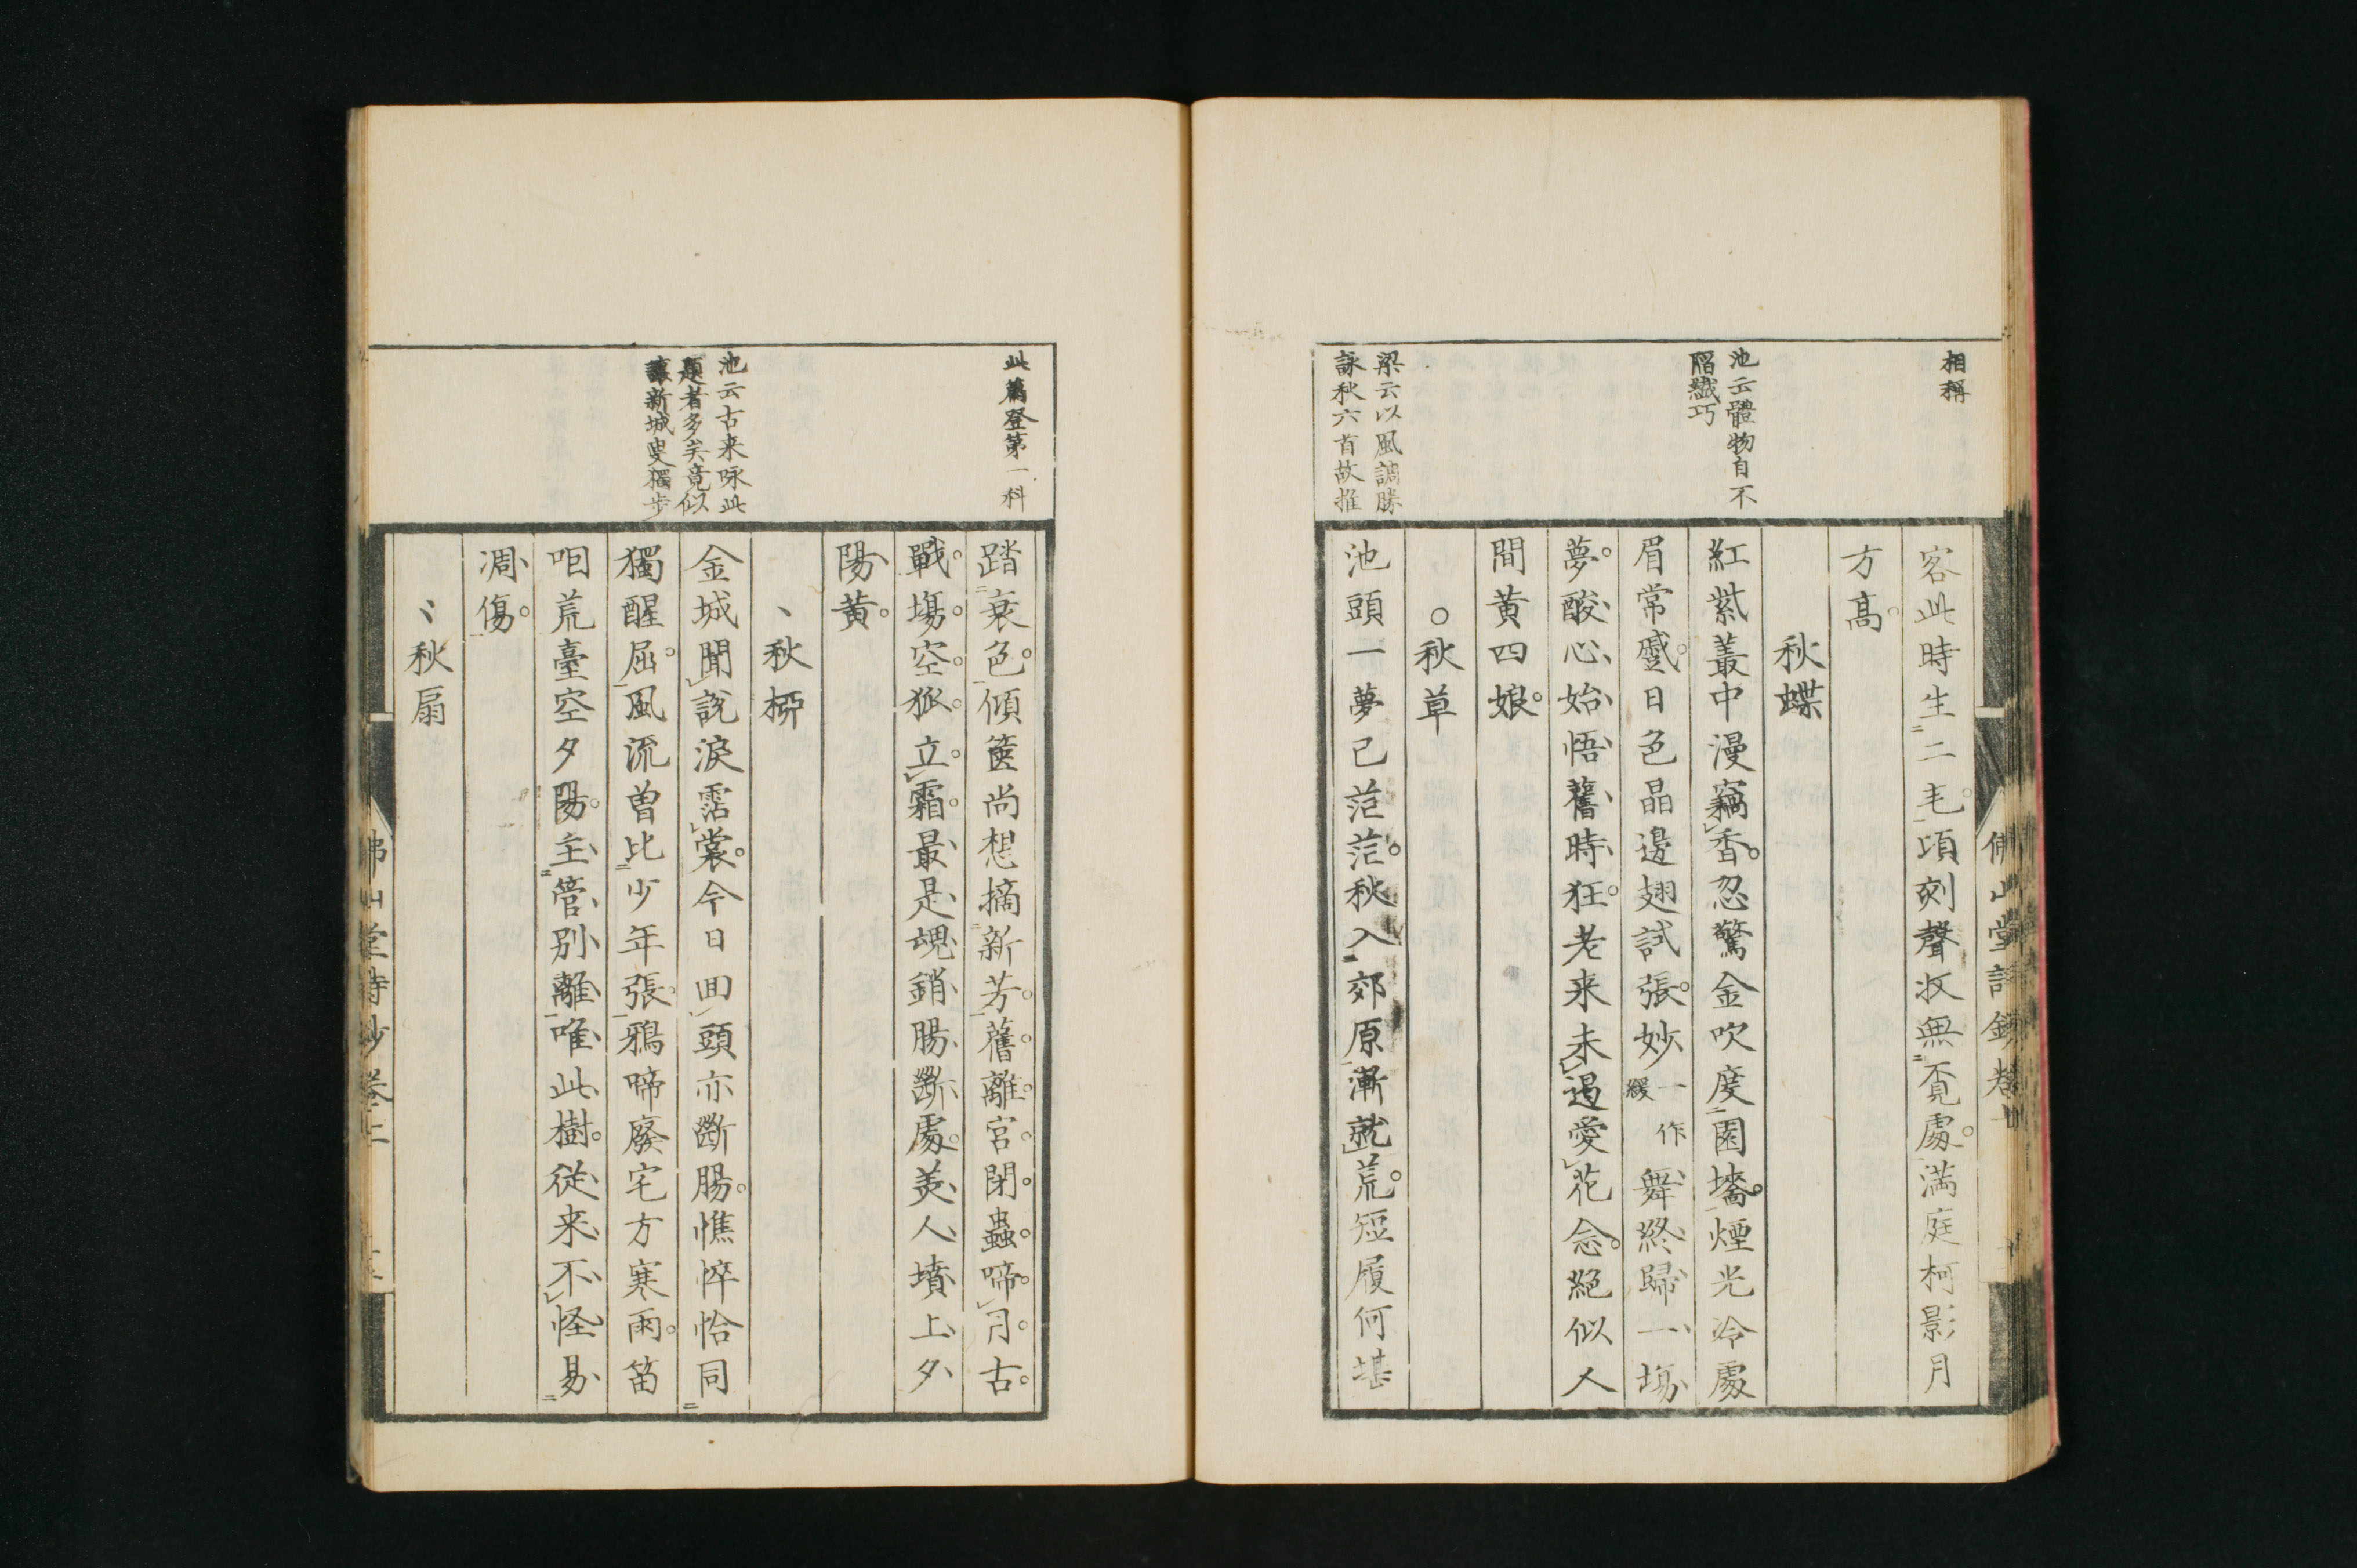 相稱
池云體物自不
陷纖巧
梁云以風調勝
詠秋六首故推
客此時生二毛頃刻聲收無覔處滿庭柯影月
方高
秋蝶
紅紫叢中漫竊香忍驚金吹度園墻煙光冷處
眉常蹙日色晶邊翅試張妙一作緩舞終歸一場
夢酸心始悟舊時狂老来未遏愛花念絕似人
間黄四娘
○秋草
池頭一夢已茫茫秋入郊原漸就荒短履何堪
此篇登第一科
池云古来咏此
題者多矣竟似
讓新城叟獨步
踏衰色傾篋尚想摘新芳舊離宮閉蟲啼月古
戰場空狐立霜最是魂銷腸斷處美人墳上夕
陽黄
、秋柳
金城聞說淚霑裳今日回頭亦斷腸憔悴恰同
獨醒屈風流曾比少年張鴉啼廢宅方寒雨笛
咽荒臺空夕陽主管別離唯此樹從来不怪易
凋傷
〻秋扇
佛山堂詩鈔卷上